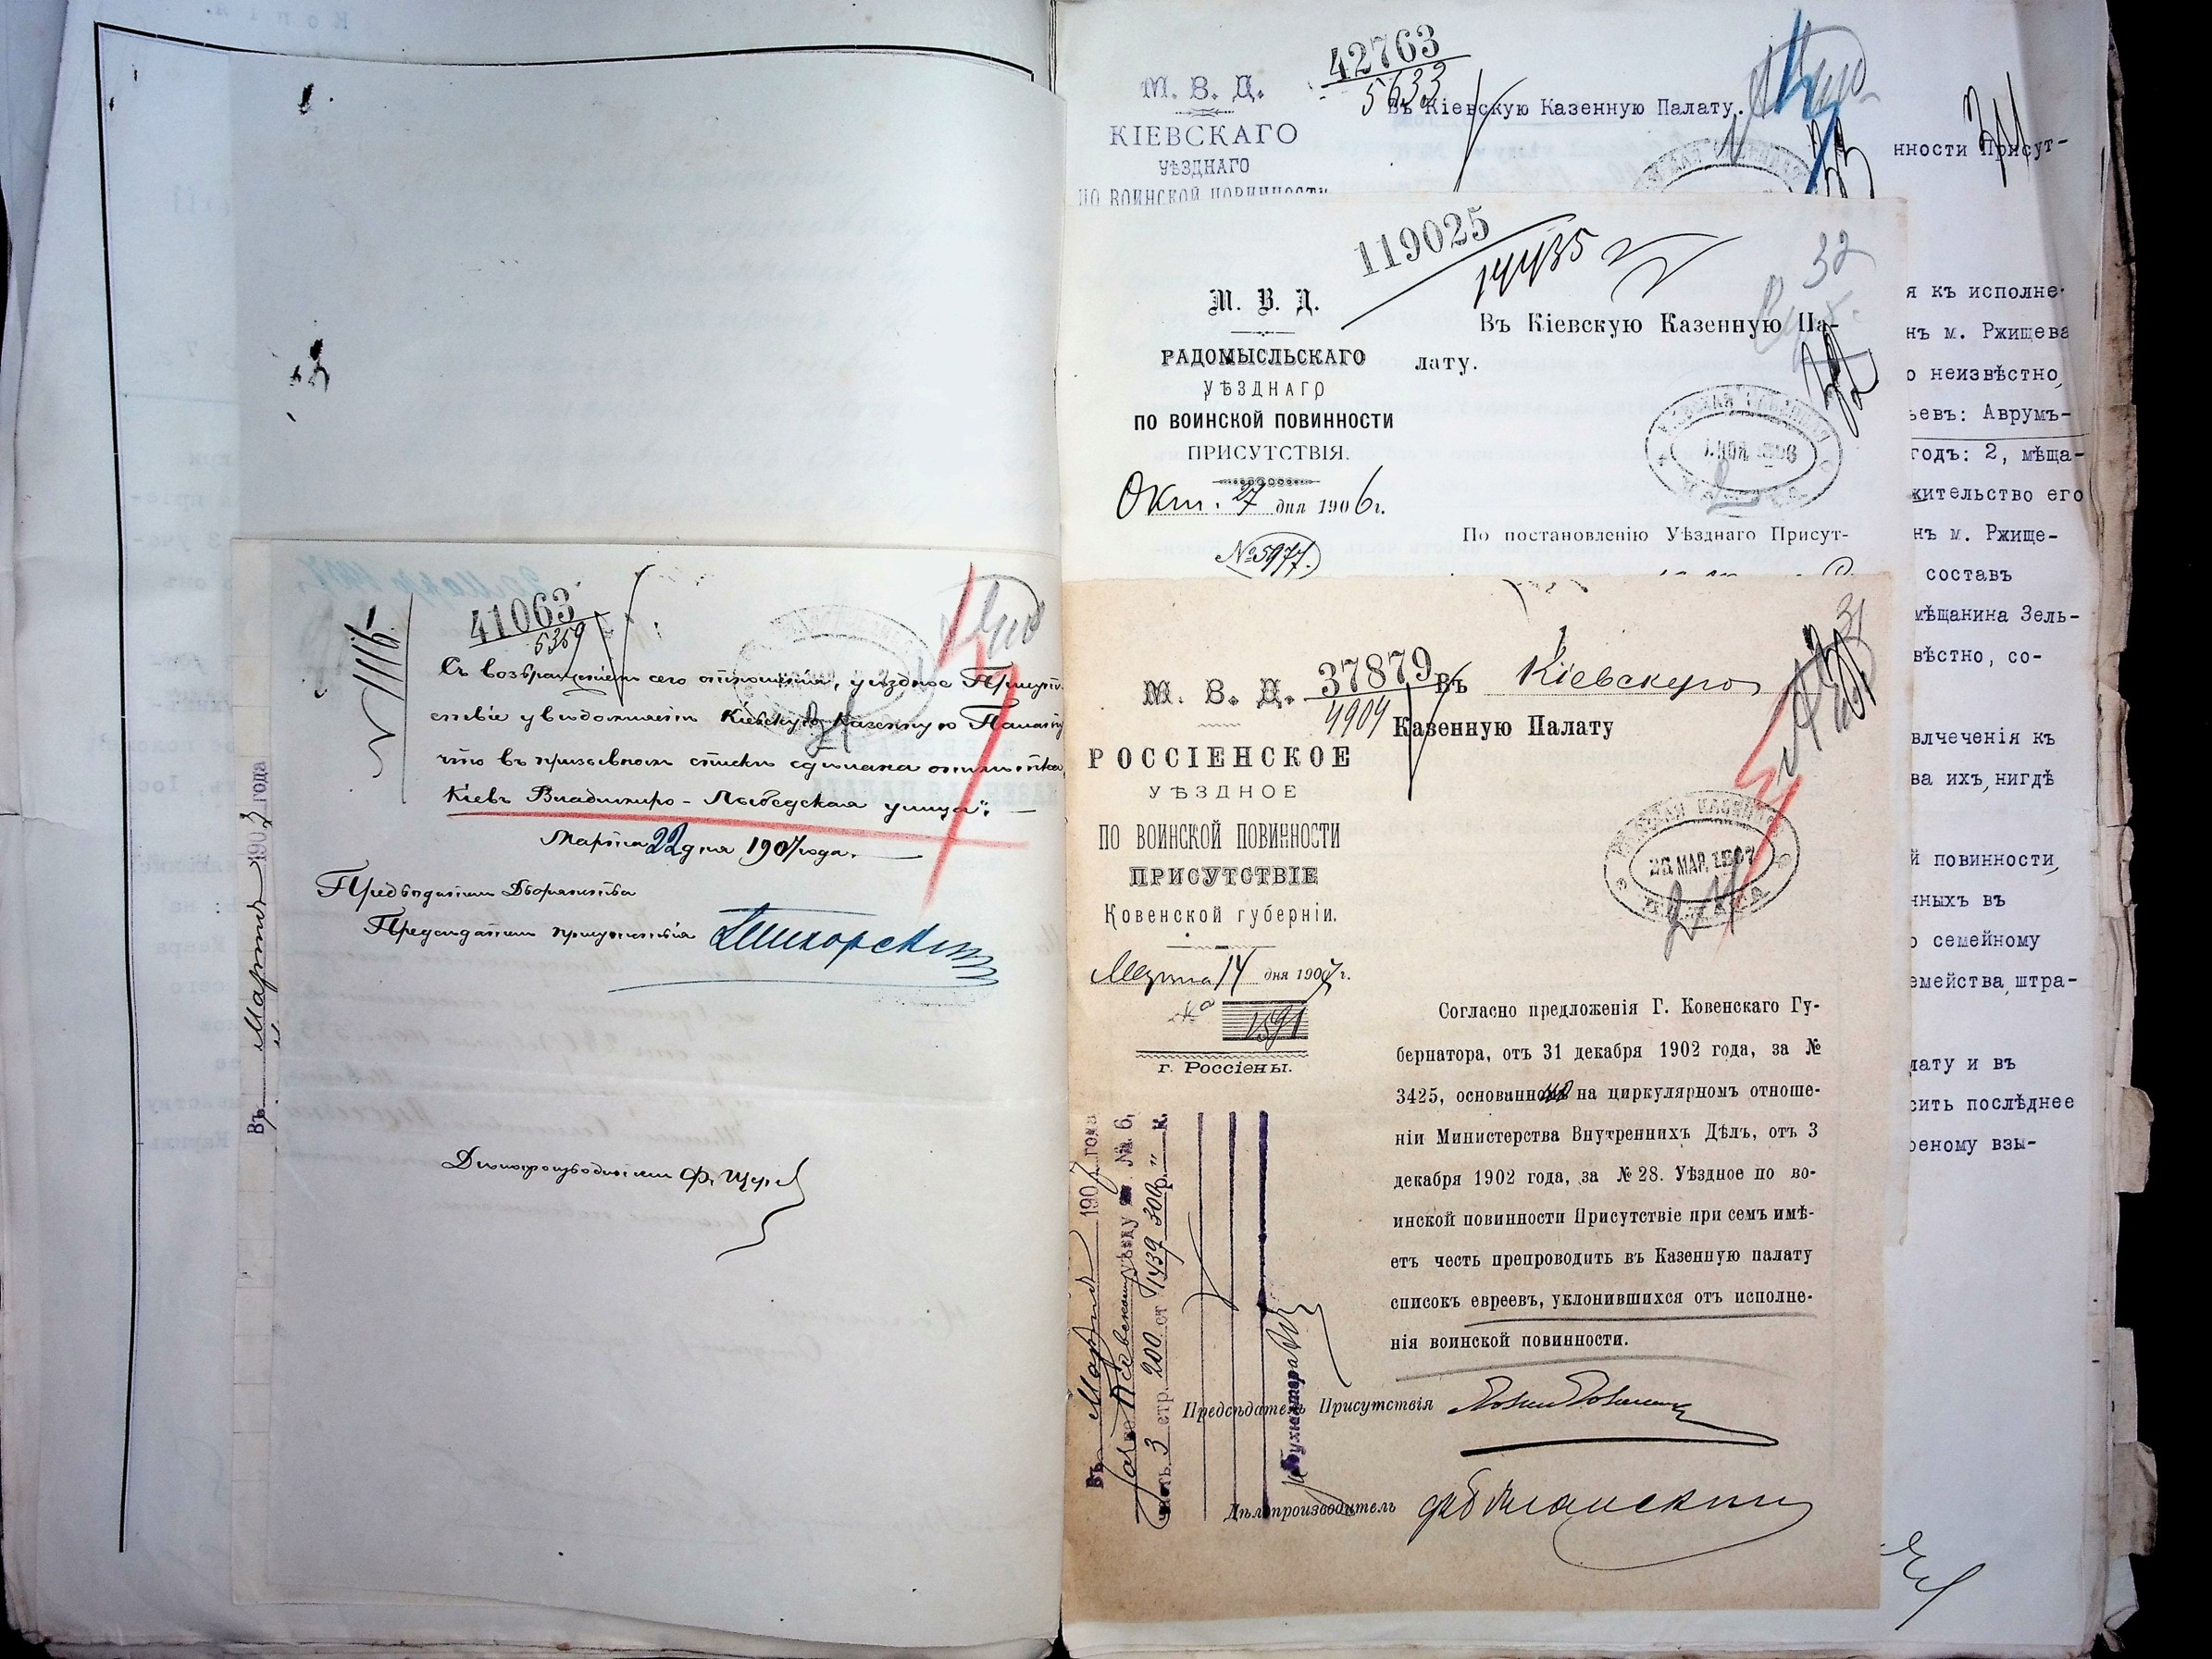 41063
5369
Съ возвращеніемъ сего отношенія, уѣздное Присут-
ствіе увѣдомляетъ Кіевскую Казенную Палату
что въ призывномъ спискѣ сдѣлана отмѣтка
Кіевъ Владимиро-Лыбедская улица".
Марта 22 дня 1907 года.
Предводитель Дворянства
Предсѣдатель присутствія
Дѣлопроизводитель
Въ Мартѣ 1907 года
42763
5633
М. В. Д.
КІЕВСКАГО
УѢЗДНАГО
ПО ВОИНСКОЙ ПОВИННОСТИ
Въ Кіевскую Казенную Палату.
нности Присут-
119025
14435
32
М. В. Д.
РАДОМЫСЛЬСКАГО
УѢЗДНАГО
ПО ВОИНСКОЙ ПОВИННОСТИ
ПРИСУТСТВІЯ.
Окт. 27 дня 1906 г.
№ 5977.
Въ Кіевскую Казенную Па-
лату.
По постановленію Уѣзднаго Присут-
31
М. В. Д.
37879
4904
Въ Кіевскую
Казенную Палату
РОССІЕНСКОЕ
УѢЗДНОЕ
ПО ВОИНСКОЙ ПОВИННОСТИ
ПРИСУТСТВІЕ
Ковенской губерніи.
Марта 14 дня 1907 г.
№ 1591
г. Россіены.
20 МАР 1907
Согласно предложенія Г. Ковенскаго Гу-
бернатора, отъ 31 декабря 1902 года, за №
3425, основанномъ на циркулярномъ отноше-
ніи Министерства Внутреннихъ Дѣлъ, отъ 3
декабря 1902 года, за № 28. Уѣздное по во-
инской повинности Присутствіе при семъ имѣ-
етъ честь препроводить въ Казенную палату
списокъ евреевъ, уклонившихся отъ исполне-
нія воинской повинности.
Предсѣдатель Присутствія
Дѣлопроизводитель
Въ Мартѣ 1907 года
уѣзду № 6,
часть 3 стр. 200 ст 1439 300 р. " к.
Бухгалтера
я къ исполне-
нъ м. Ржищева
о неизвѣстно,
ьевъ: Аврумъ-
годъ: 2, мѣща-
жительство его
нъ м. Ржище-
составъ
мѣщанина Зель-
вѣстно, со-
влчеченія къ
ва ихъ, нигдѣ
й повинности,
нныхъ въ
о семейному
емейства штра-
лату и въ
сить послѣднее
реному взы-